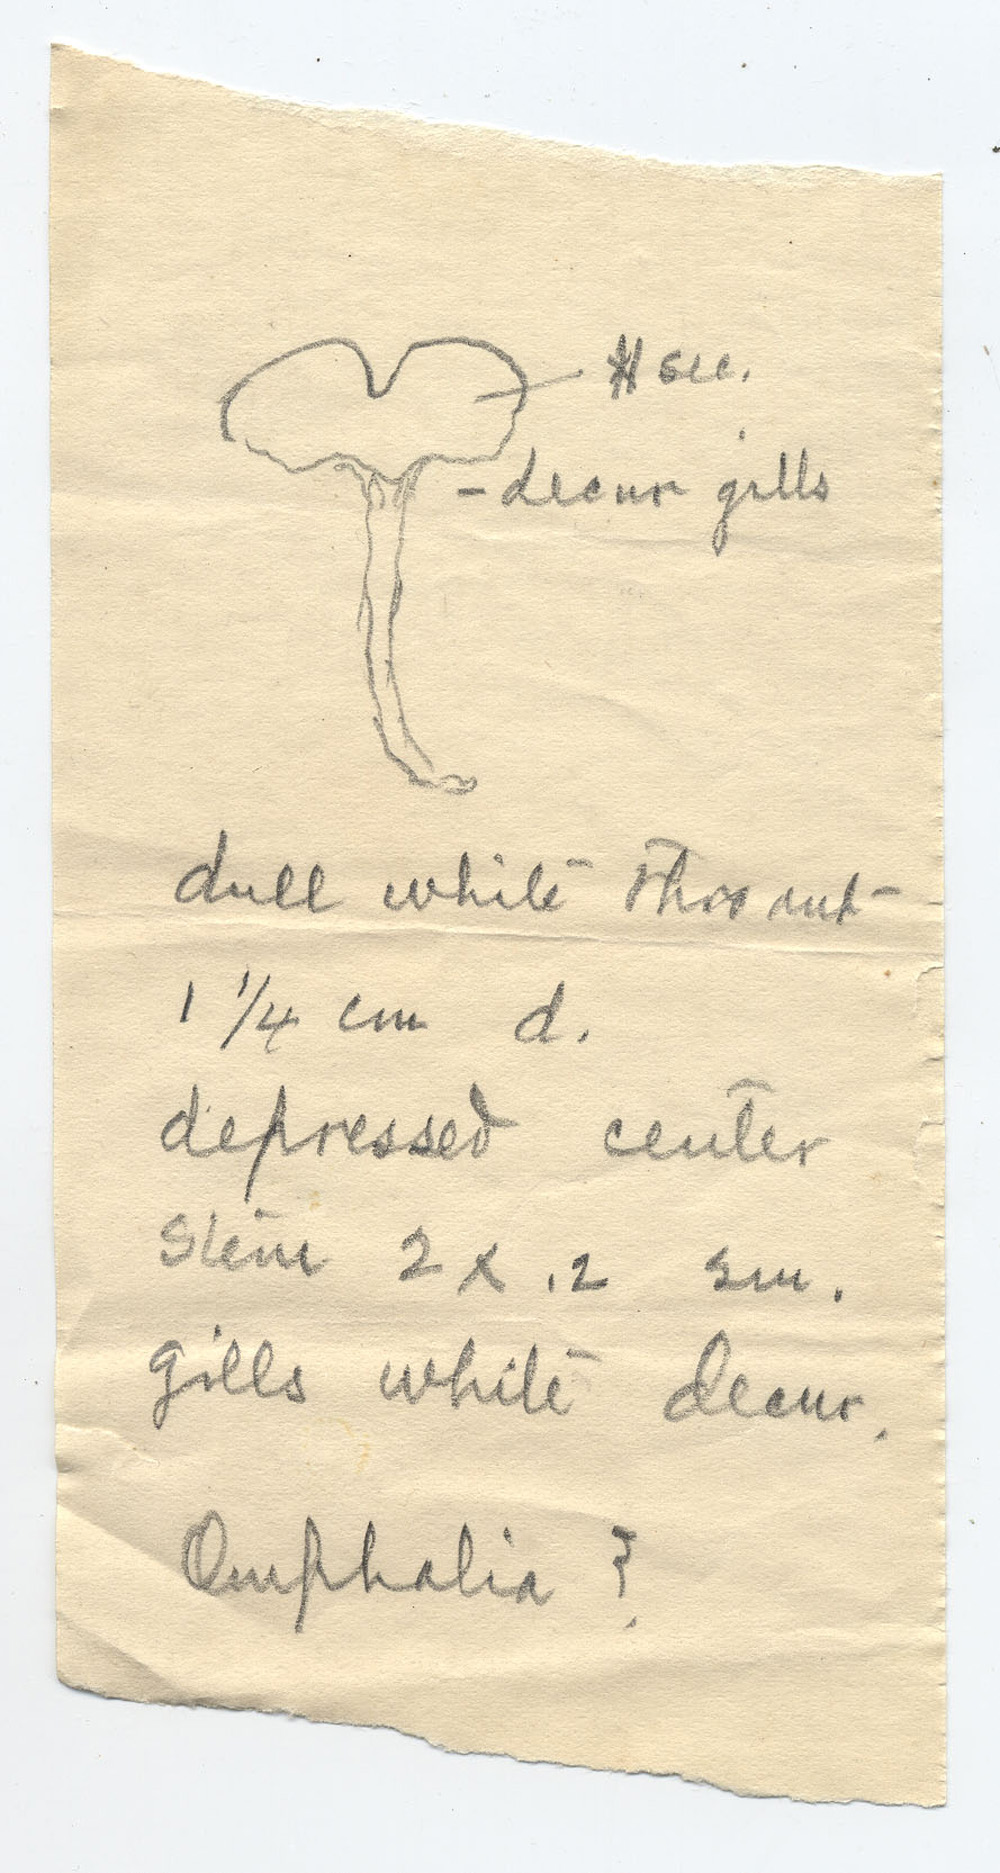 - decur gills
dull white Thruout
1 1/4 cm d.
depressed center
stem 2 x .2 cm.
gills white decur.
Omphalia ?